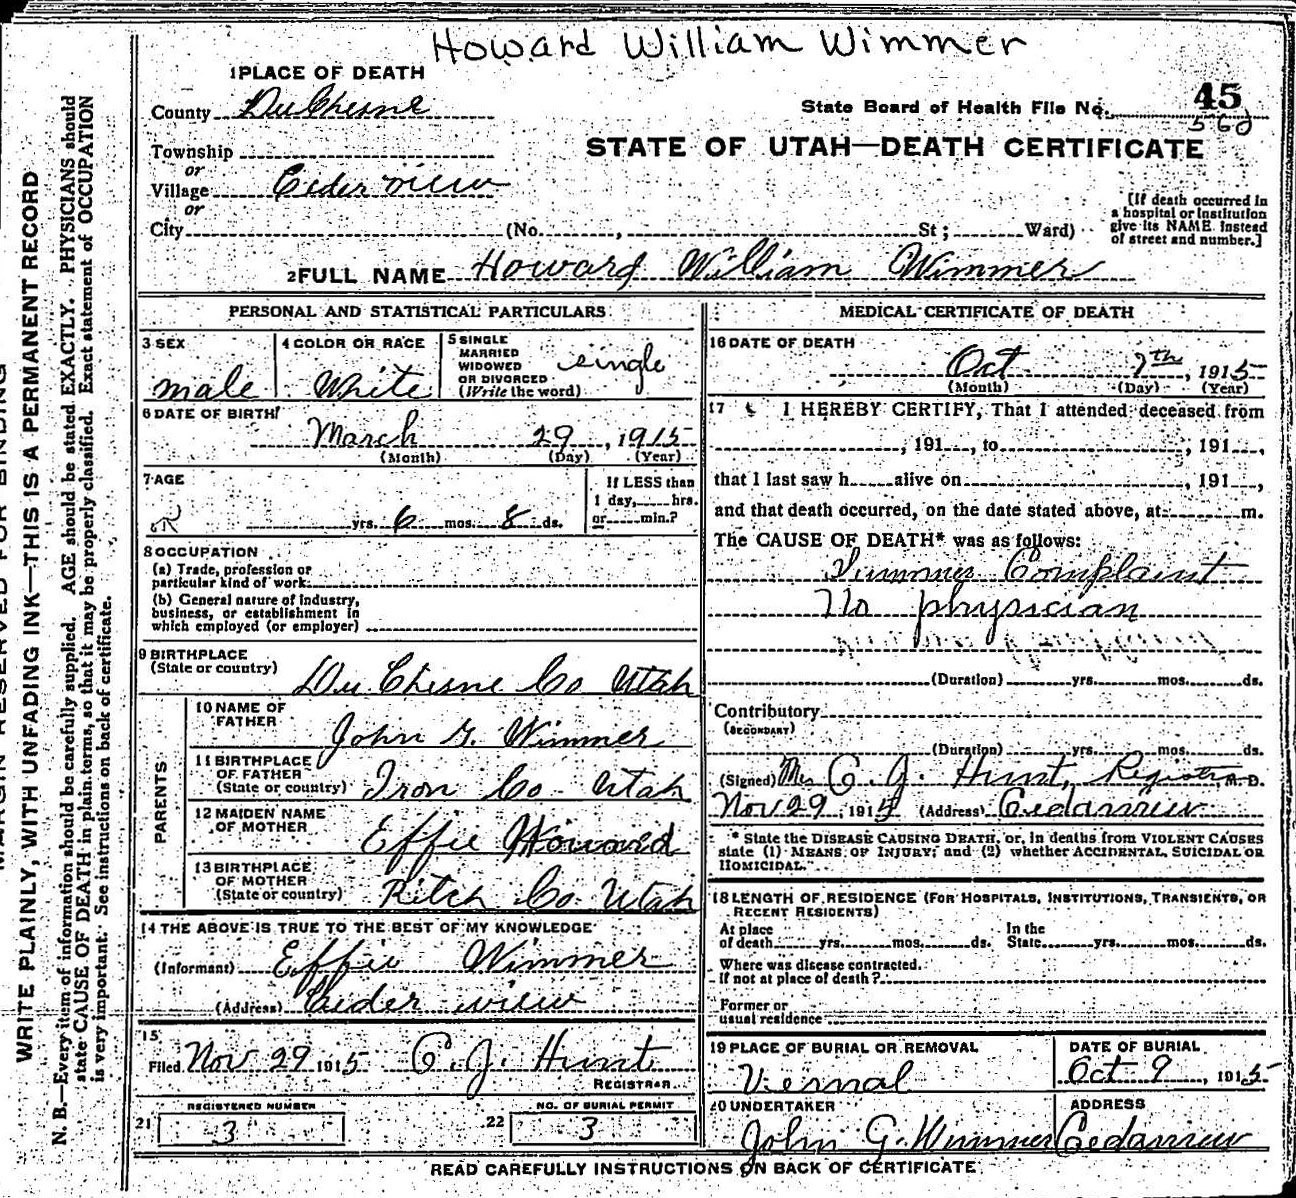 Howard William Wimmer
1 PLACE OF DEATH
County DuChesne
State Board of Health File No. 45
560
Township
or
Village Ceder view
or
City (No. , St; Ward)
STATE OF UTAH—DEATH CERTIFICATE
[If death occurred in
a hospital or institution
give its NAME instead
of street and number.]
2 FULL NAME Howard William Wimmer
PERSONAL AND STATISTICAL PARTICULARS
3 SEX male
4 COLOR OR RACE White
5 SINGLE
MARRIED
WIDOWED
OR DIVORCED
(Write the word) single
6 DATE OF BIRTH
March 29, 1915
(Month) (Day) (Year)
7 AGE
yrs. 6 mos. 8 ds.
If LESS than
1 day, hrs.
or min.?
8 OCCUPATION
(a) Trade, profession or
particular kind of work
(b) General nature of industry,
business, or establishment in
which employed (or employer)
9 BIRTHPLACE
(State or country) Du Chesne Co Utah
PARENTS
10 NAME OF
FATHER John G. Wimmer
11 BIRTHPLACE
OF FATHER
(State or country) Iron Co Utah
12 MAIDEN NAME
OF MOTHER Effie Howard
13 BIRTHPLACE
OF MOTHER
(State or country) Ritch Co. Utah
14 THE ABOVE IS TRUE TO THE BEST OF MY KNOWLEDGE
(Informant) Effie Wimmer
(Address) Ceider view
15
Filed Nov 29 1915 C. J. Hunt
REGISTRAR
REGISTERED NUMBER
21 3
NO. OF BURIAL PERMIT
22 3
MEDICAL CERTIFICATE OF DEATH
16 DATE OF DEATH
Oct 7th, 1915
(Month) (Day) (Year)
17 I HEREBY CERTIFY, That I attended deceased from
, 191 , to , 191 ,
that I last saw h alive on , 191 ,
and that death occurred, on the date stated above, at m.
The CAUSE OF DEATH* was as follows:
Summer Complaint
No physician
(Duration) yrs. mos. ds.
Contributory
(SECONDARY)
(Duration) yrs. mos. ds.
(Signed) Mrs C. J. Hunt, Registrar, M.D.
Nov 29, 191 (Address) Cedarview
* State the DISEASE CAUSING DEATH, or, in deaths from VIOLENT CAUSES
state (1) MEANS OF INJURY; and (2) whether ACCIDENTAL, SUICIDAL OR
HOMICIDAL.
18 LENGTH OF RESIDENCE (FOR HOSPITALS, INSTITUTIONS, TRANSIENTS, OR
RECENT RESIDENTS)
At place
of death yrs. mos. ds.
In the
State yrs. mos. ds.
Where was disease contracted.
If not at place of death?
Former or
usual residence
19 PLACE OF BURIAL OR REMOVAL
Vernal
DATE OF BURIAL
Oct 9, 1915
20 UNDERTAKER
John G. Wimmer
ADDRESS
Cedarview
READ CAREFULLY INSTRUCTIONS ON BACK OF CERTIFICATE
MARGIN RESERVED FOR BINDING
WRITE PLAINLY, WITH UNFADING INK—THIS IS A PERMANENT RECORD
N. B.—Every item of information should be carefully supplied. AGE should be stated EXACTLY. PHYSICIANS should
state CAUSE OF DEATH in plain terms, so that it may be properly classified. Exact statement of OCCUPATION
is very important. See instructions on back of certificate.